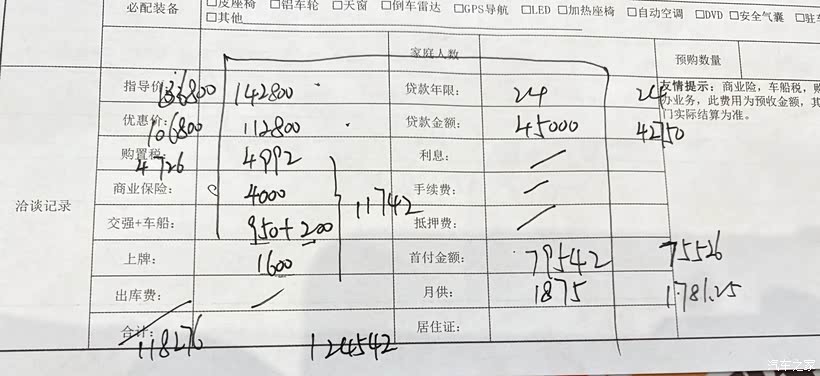 必配装备 □皮座椅 □铝车轮 □天窗 □倒车雷达 □GPS导航 □LED □加热座椅 □自动空调 □DVD □安全气囊 □驻车
□其他
家庭人数 预购数量
指导价: 136800 142800 贷款年限: 24 24 友情提示：商业险，车船税，购
办业务，此费用为预收金额，其
优惠价: 106800 112800 贷款金额: 45000 42750 门实际结算为准。
购置税: 4726 4992 利息:
洽谈记录 商业保险: 4000 11742 手续费:
交强+车船: 950+200 抵押费:
上牌: 1600 首付金额: 79542 75526
出库费: 月供: 1875 1781.25
合计: 118276 124542 居住证:
汽车之家